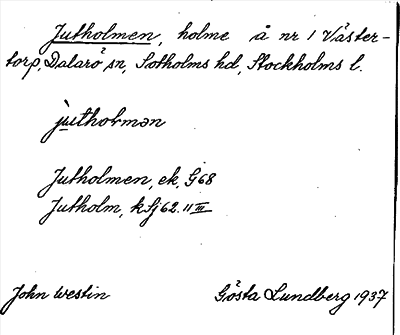 Jutholmen, holme å nr 1 Väster-
torp, Dalarö sn, Sotholms hd, Stockholms l.
Jutholmen, ek, G68
Jutholm, kSj 62. 11 III
John Westin
Gösta Lundberg 1937